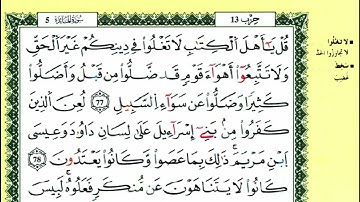 5 سورة المائدة
حزب 13
قُلْ يَٰٓأَهْلَ ٱلْكِتَٰبِ لَا تَغْلُوا۟ فِى دِينِكُمْ غَيْرَ ٱلْحَقِّ
وَلَا تَتَّبِعُوٓا۟ أَهْوَآءَ قَوْمٍ قَدْ ضَلُّوا۟ مِن قَبْلُ وَأَضَلُّوا۟
كَثِيرًا وَضَلُّوا۟ عَن سَوَآءِ ٱلسَّبِيلِ 77 لُعِنَ ٱلَّذِينَ
كَفَرُوا۟ مِنۢ بَنِىٓ إِسْرَٰٓءِيلَ عَلَىٰ لِسَانِ دَاوُۥدَ وَعِيسَى
ٱبْنِ مَرْيَمَ ذَٰلِكَ بِمَا عَصَوا۟ وَّكَانُوا۟ يَعْتَدُونَ 78
كَانُوا۟ لَا يَتَنَاهَوْنَ عَن مُّنكَرٍ فَعَلُوهُ لَبِئْسَ
لا تغلوا
لا تجاوزوا الحد
سخط
غضب